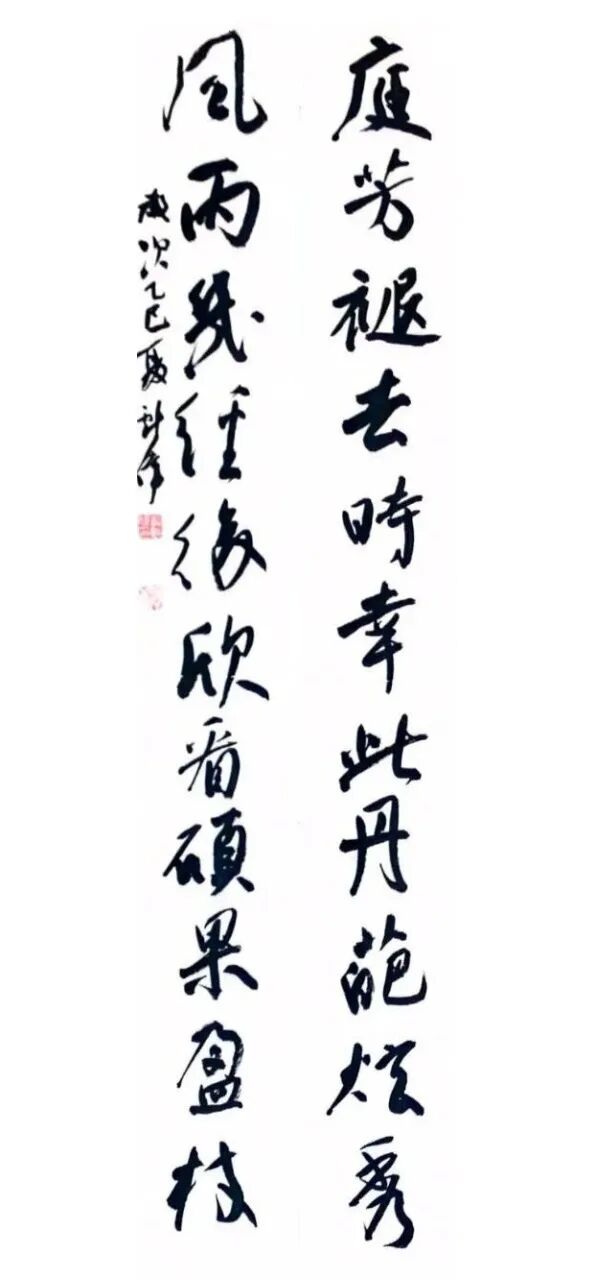 庭芳褪去時幸此丹葩炫秀
風雨幾經後欣看碩果盈枝
歲次乙巳夏